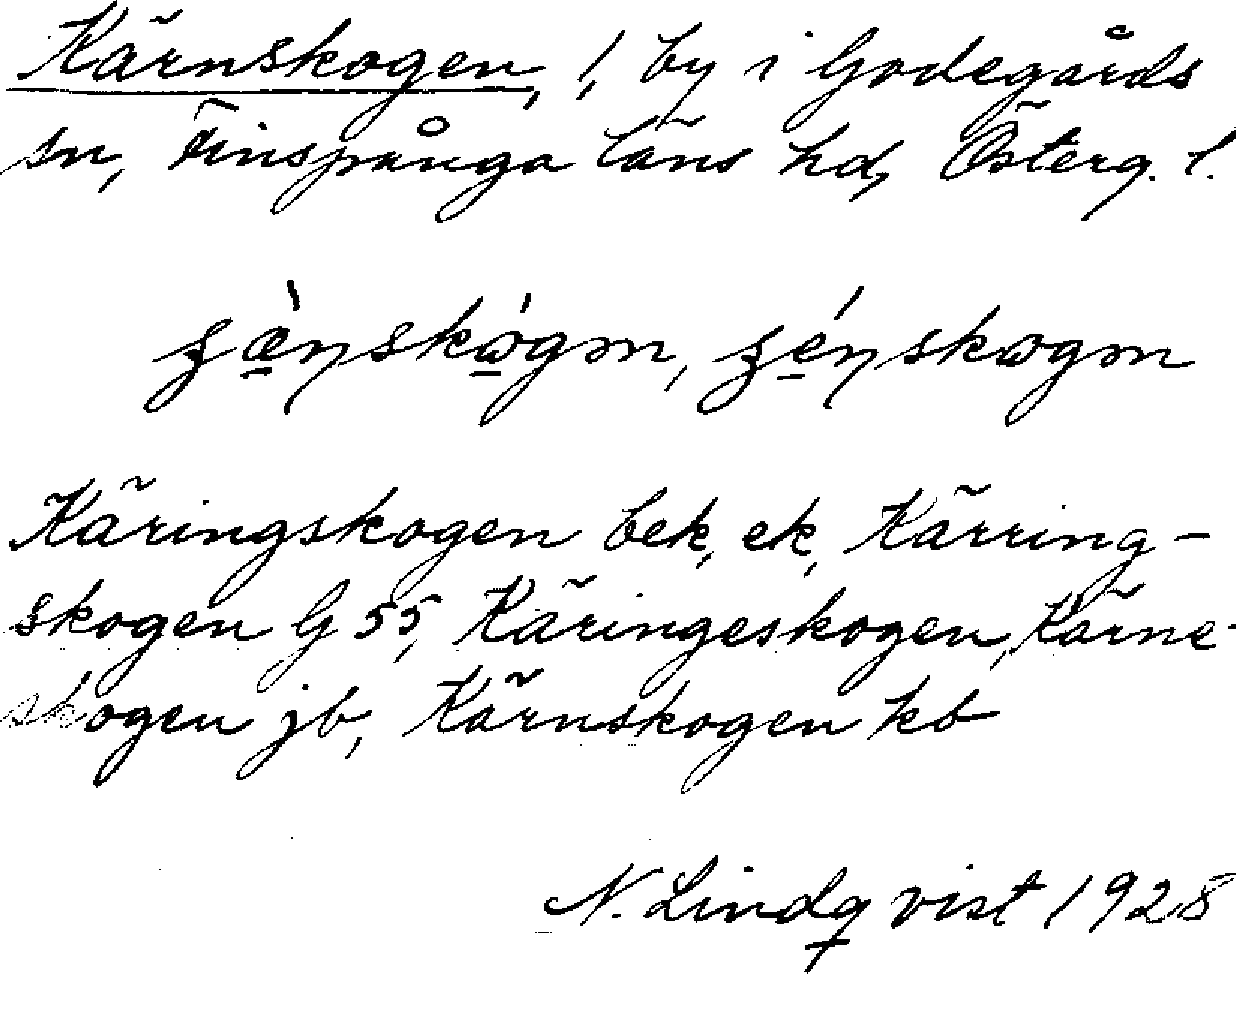 Kärnskogen, 1, by i Godegårds
sn, Finspånga läns hd, Österg. l.
Käringskogen bek, ek, Kärring-
skogen G 55, Käringeskogen, Kärne-
skogen jb, Kärnskogen kb
N. Lindqvist 1928